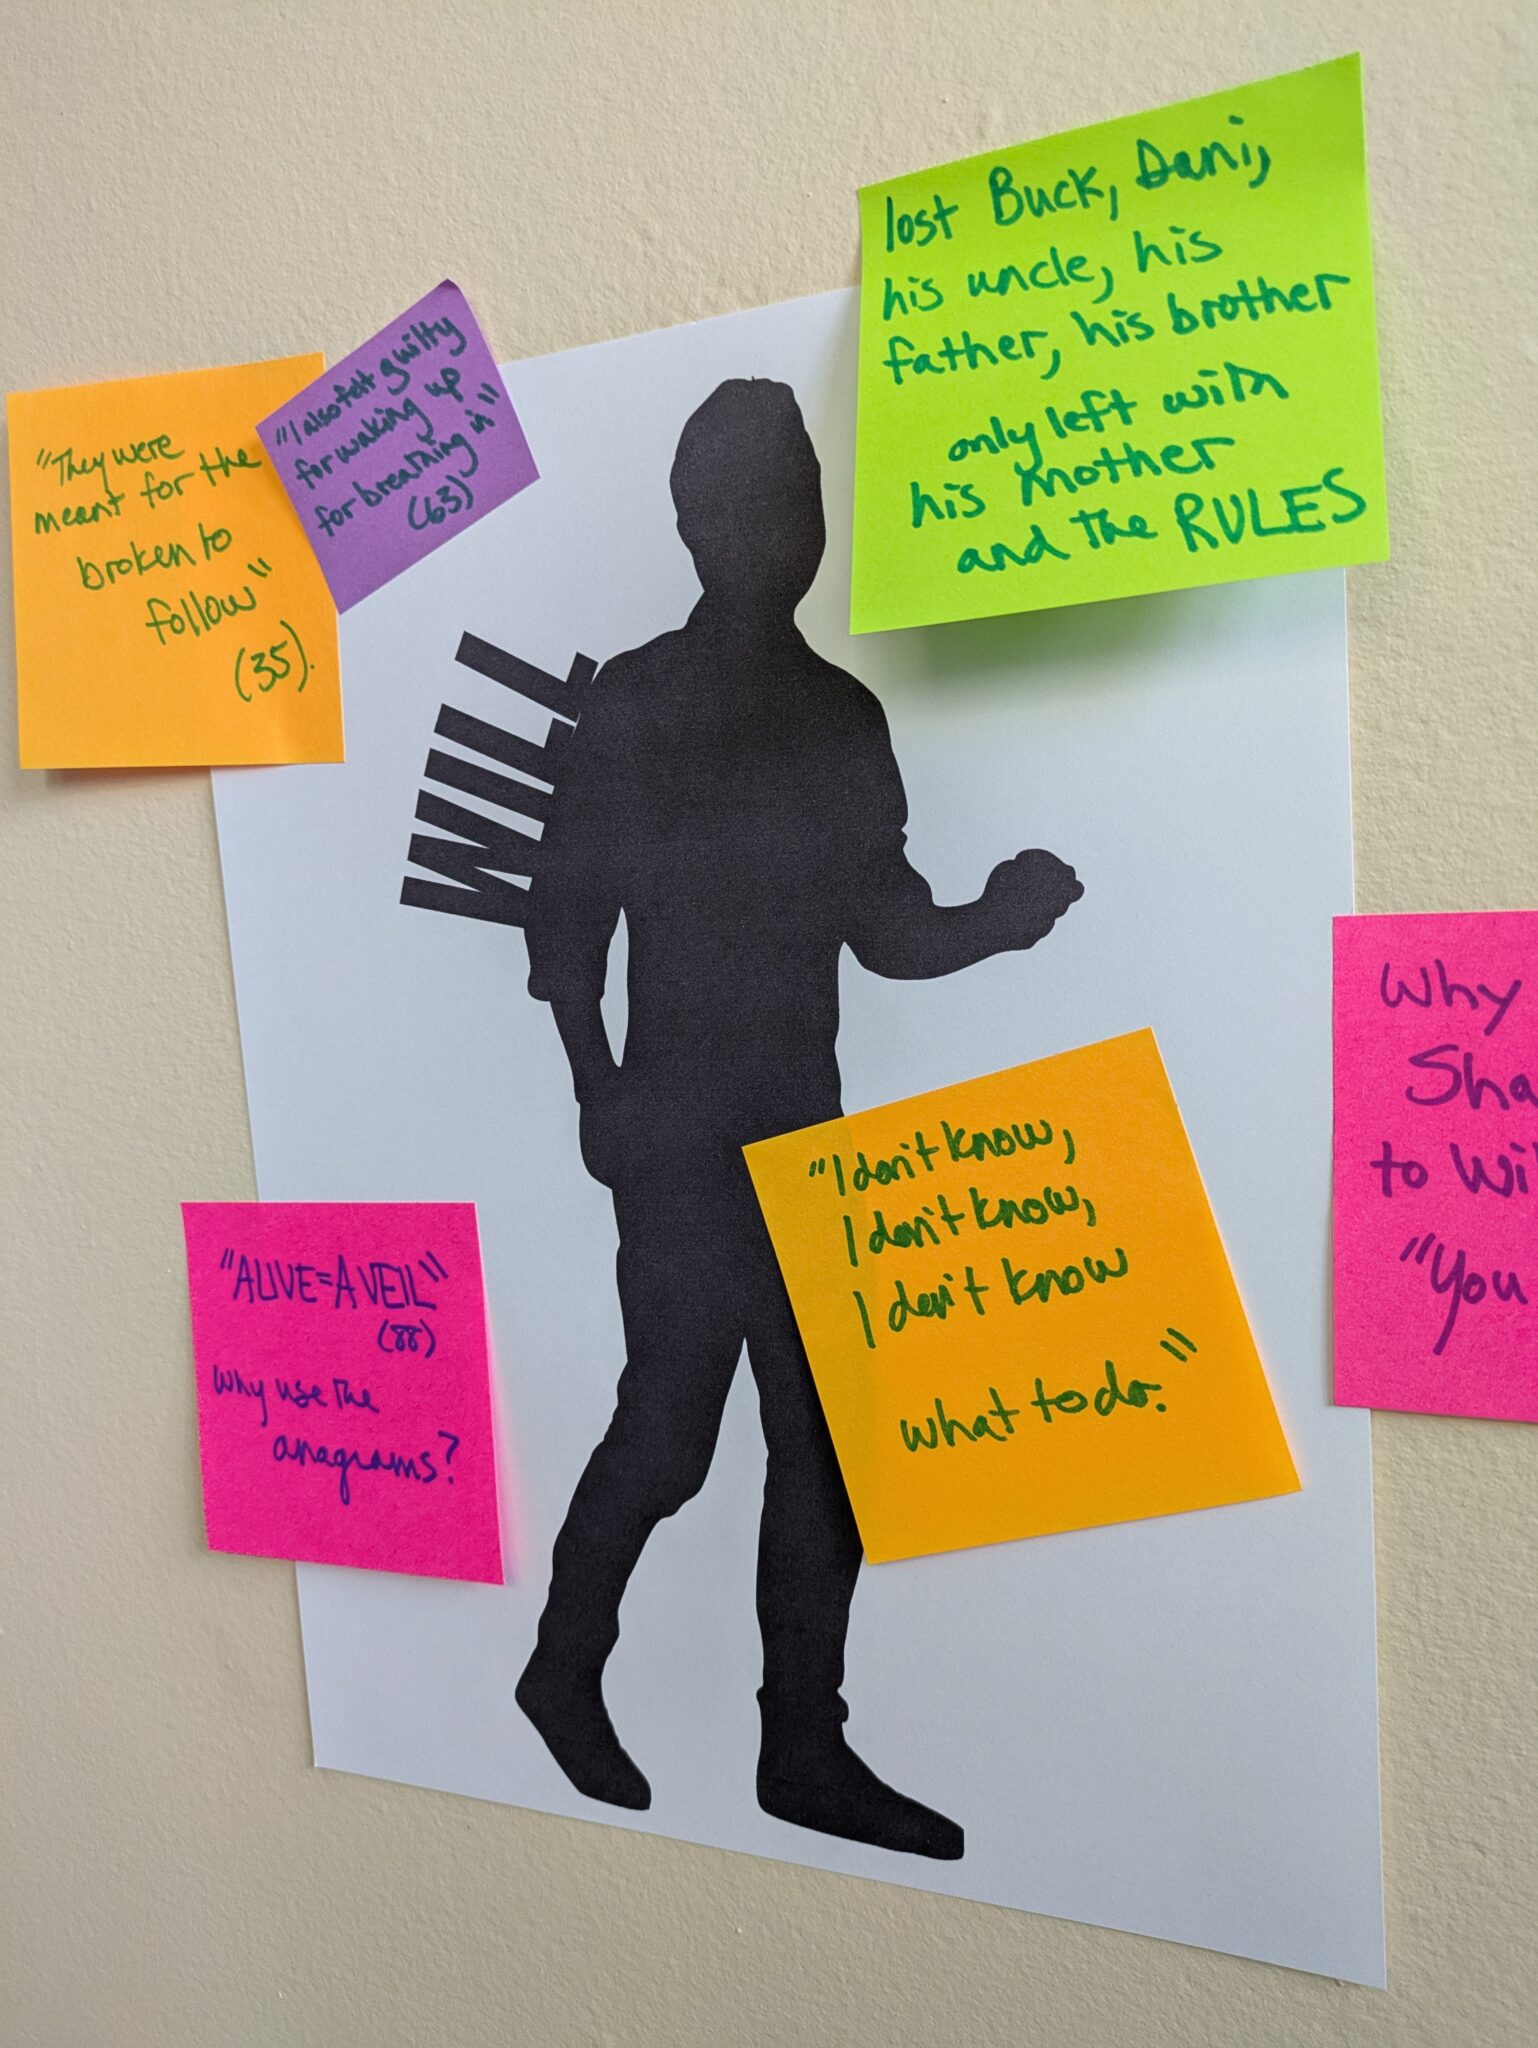 lost Buck, Dani,
his uncle, his
father, his brother
only left with
his mother
and the RULES
"I also felt guilty
for waking up
for breathing in"
(63)
"They were
meant for the
broken to
follow"
(35).
WILL
Why
Sha
to Wi
"You
"I don't know,
I don't know,
I don't know
what to do."
"ALIVE=A VEIL"
(88)
Why use the
anagrams?